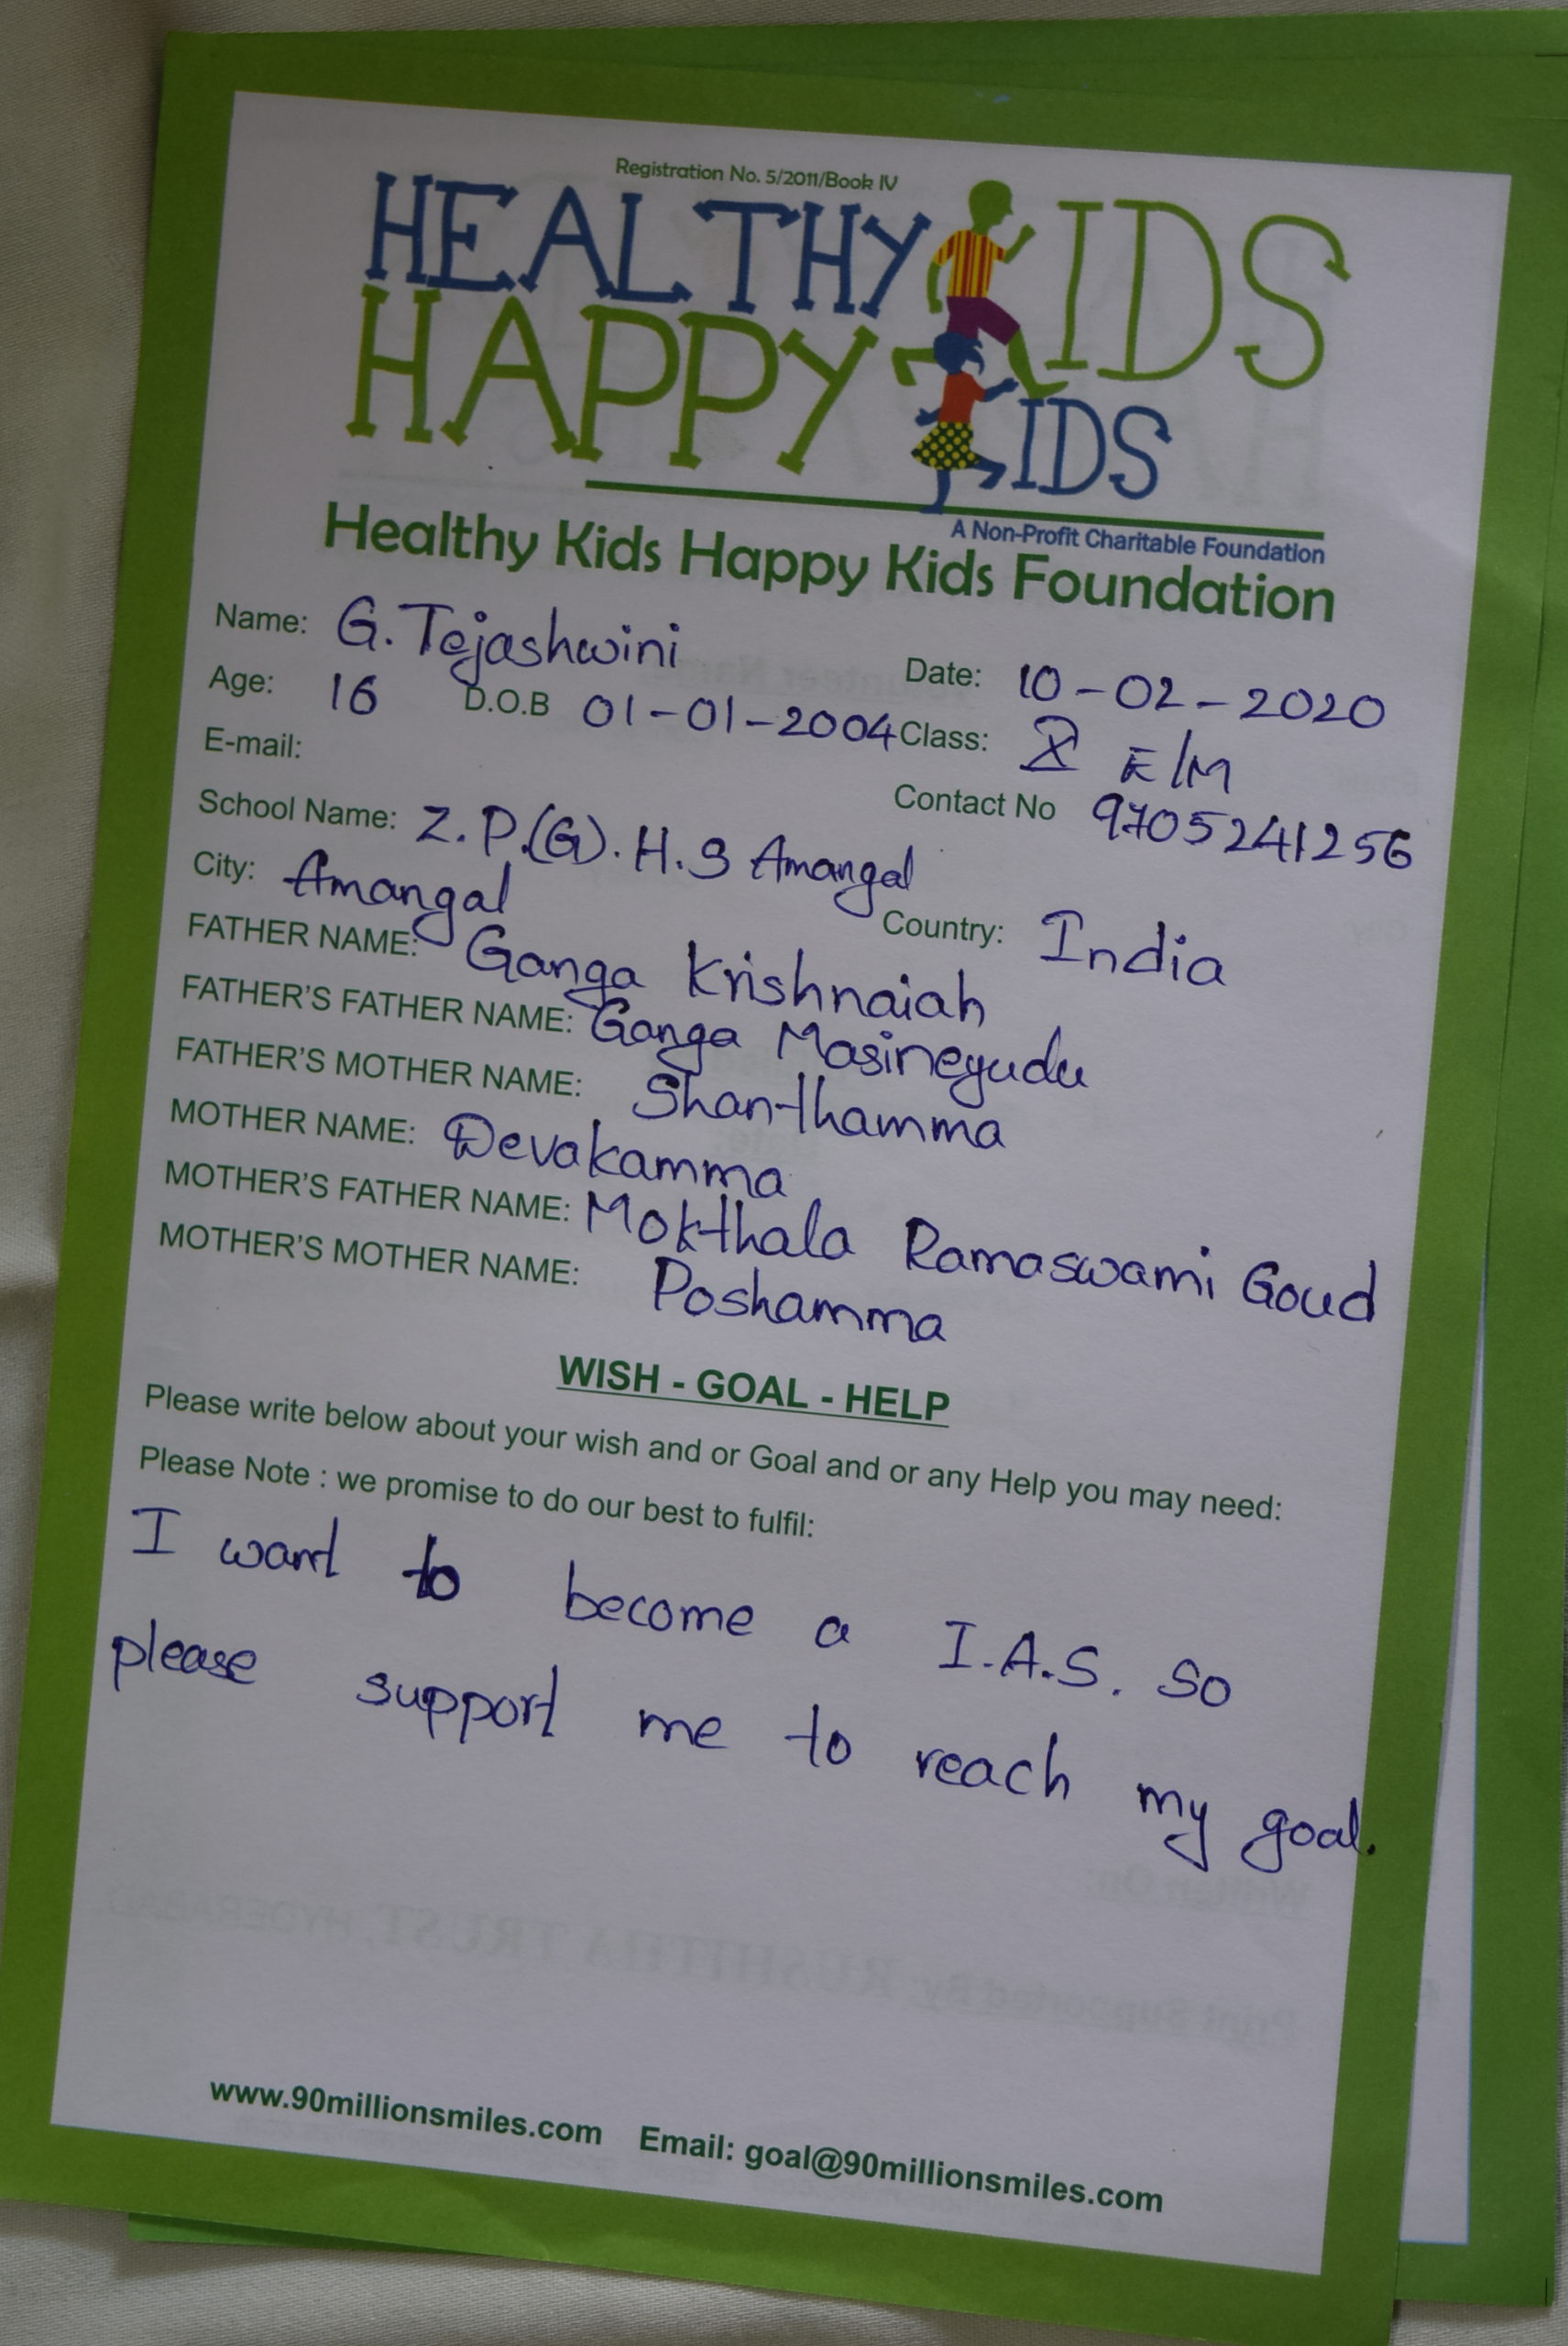 Registration No. 5/2011/Book IV
HEALTHY KIDS
HAPPY KIDS
A Non-Profit Charitable Foundation
Healthy Kids Happy Kids Foundation
Name: G. Tejashwini Date: 10-02-2020
Age: 16 D.O.B 01-01-2004 Class: X E/M
E-mail: Contact No 9705241256
School Name: Z.P.(G).H.S Amangal
City: Amangal Country: India
FATHER NAME: Ganga Krishnaiah
FATHER'S FATHER NAME: Ganga Masineyudu
FATHER'S MOTHER NAME: Shanthamma
MOTHER NAME: Devakamma
MOTHER'S FATHER NAME: Mokthala Ramaswami Goud
MOTHER'S MOTHER NAME: Poshamma
WISH - GOAL - HELP
Please write below about your wish and or Goal and or any Help you may need:
Please Note : we promise to do our best to fulfil:
I want to become a I.A.S. So
please support me to reach my goal.
www.90millionsmiles.com Email: goal@90millionsmiles.com